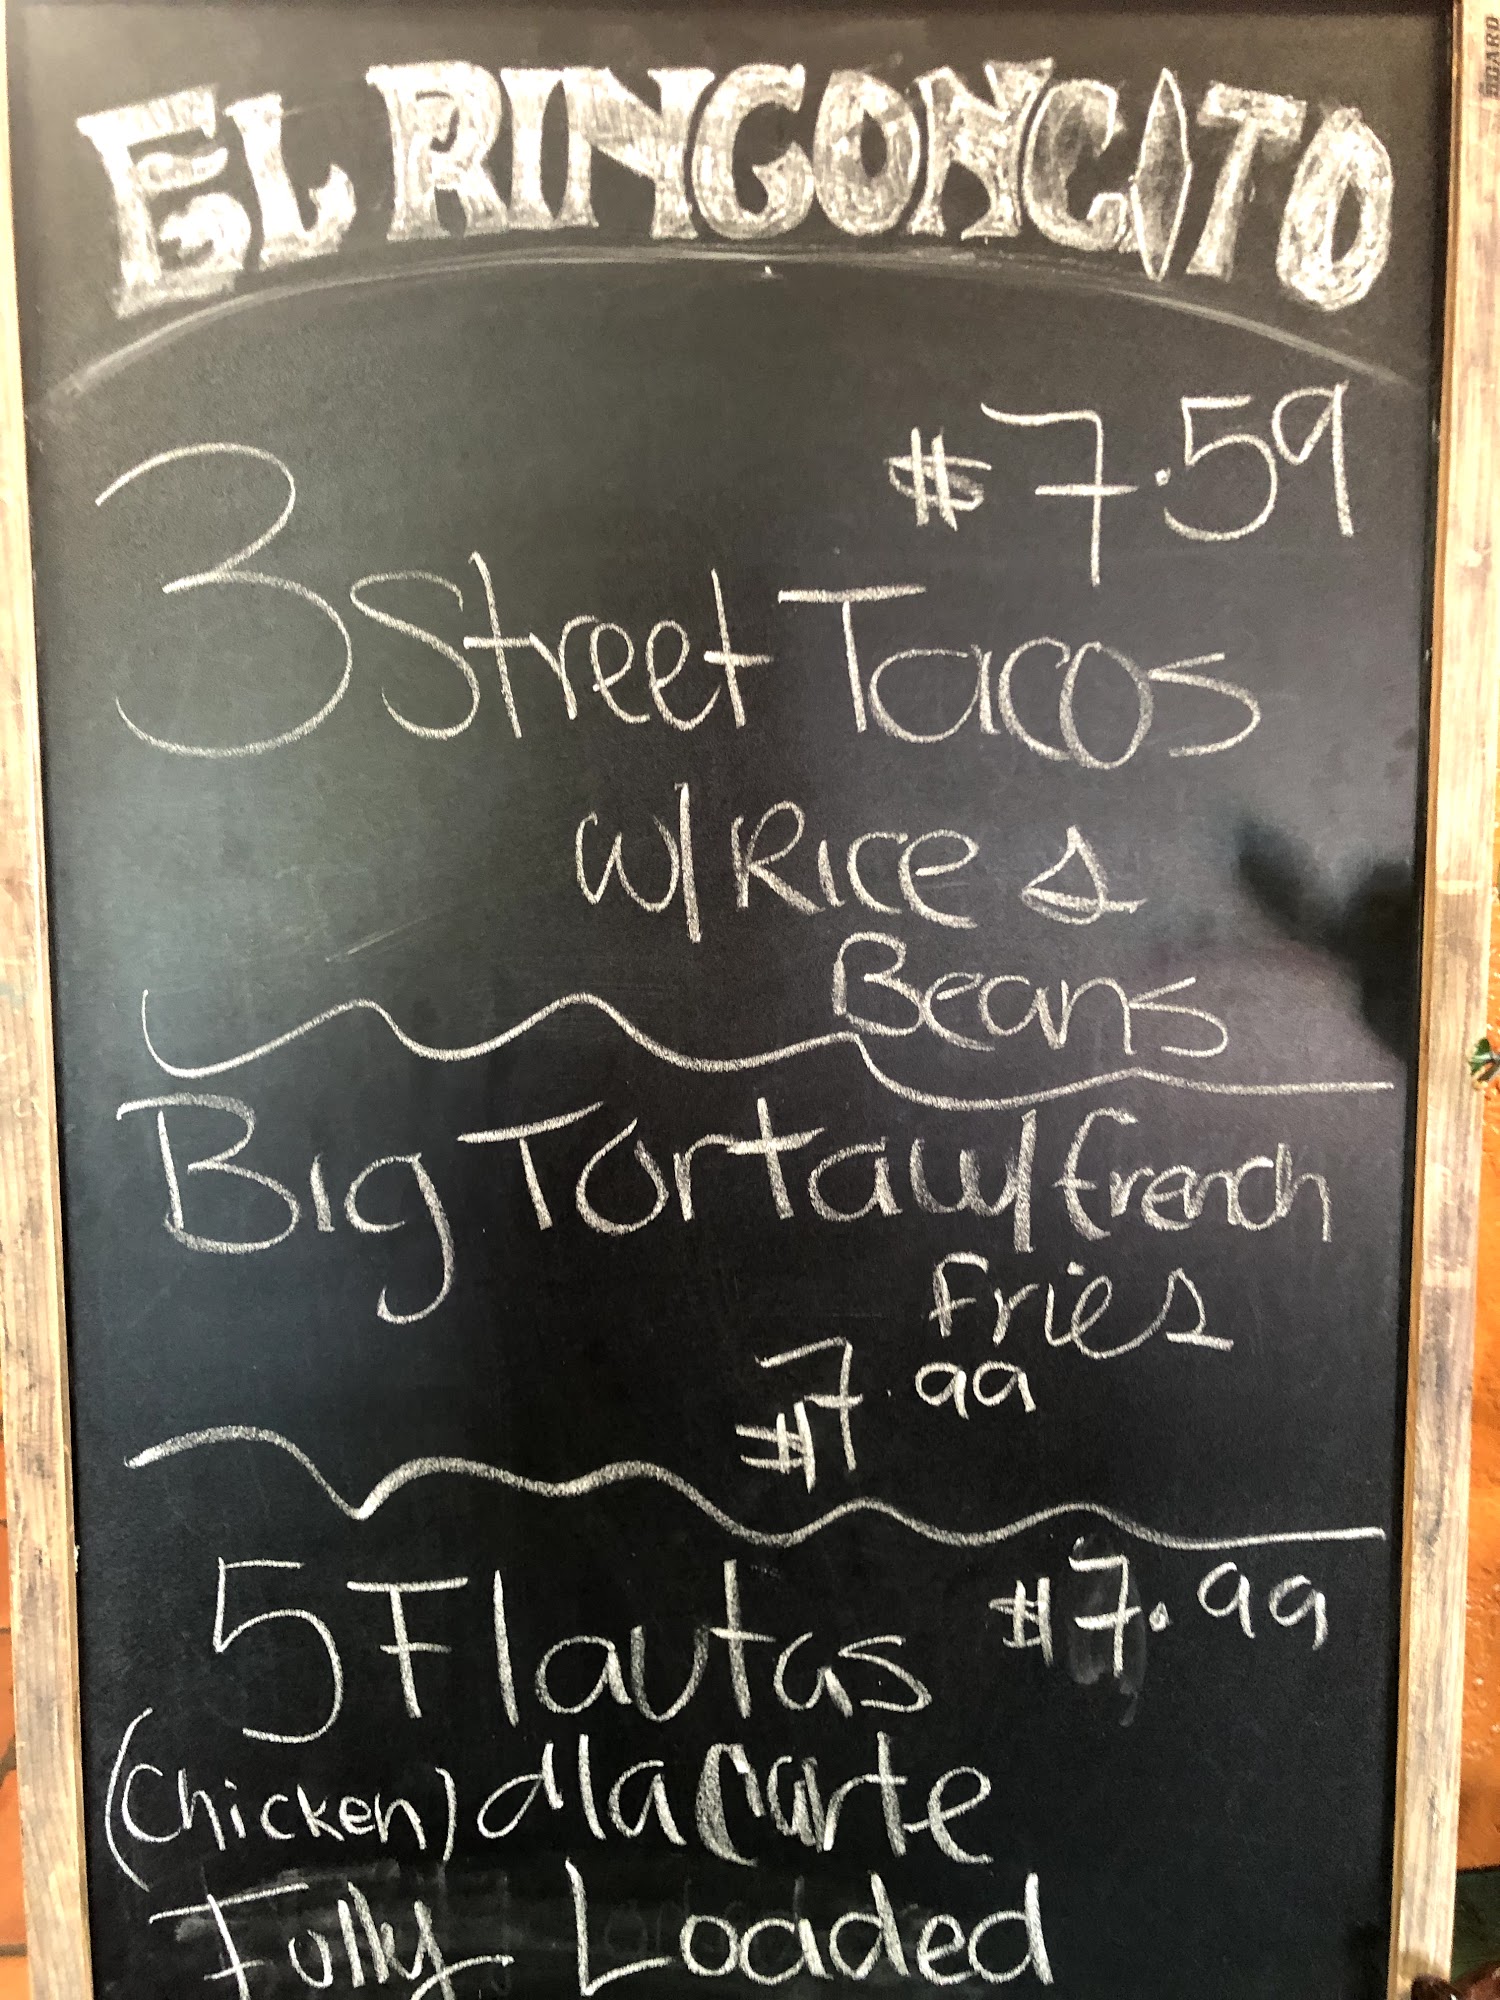 EL RINGONCITO
$7.59
3 Street Tacos
w/ Rice &
Beans
Big Torta w/ french
fries
$7.99
5 Flautas $7.99
(Chicken) a la Carte
Fully Loaded